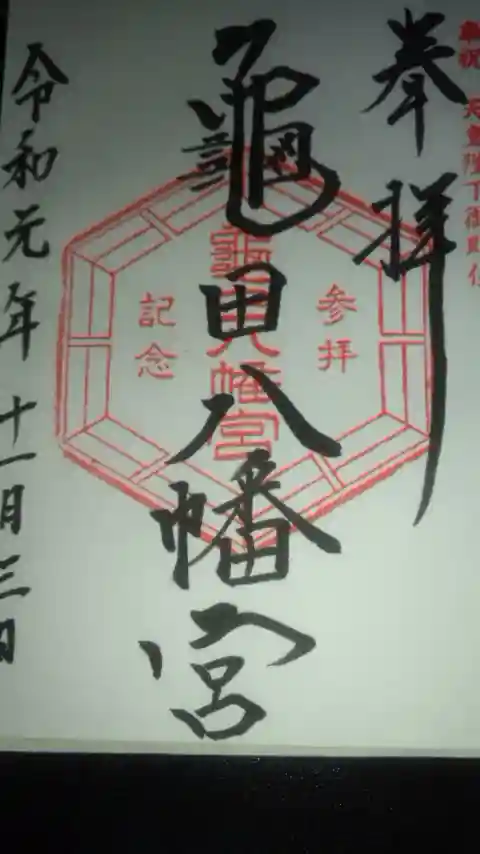 奉祝 天皇陛下御即位
奉拝
龜田八幡宮
参拝
龜田八幡宮
記念
令和元年十一月三日